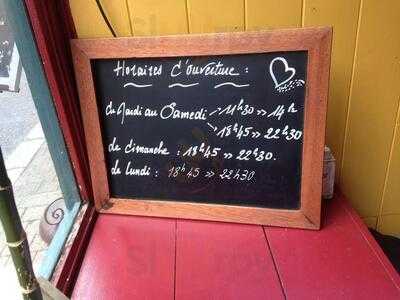 Horaires d'ouverture :
Du Mardi au Samedi → 11h30 >> 14h
→ 18h45 >> 22h30
Le dimanche : 18h45 >> 22h30.
Le lundi : 18h45 >> 22h30.